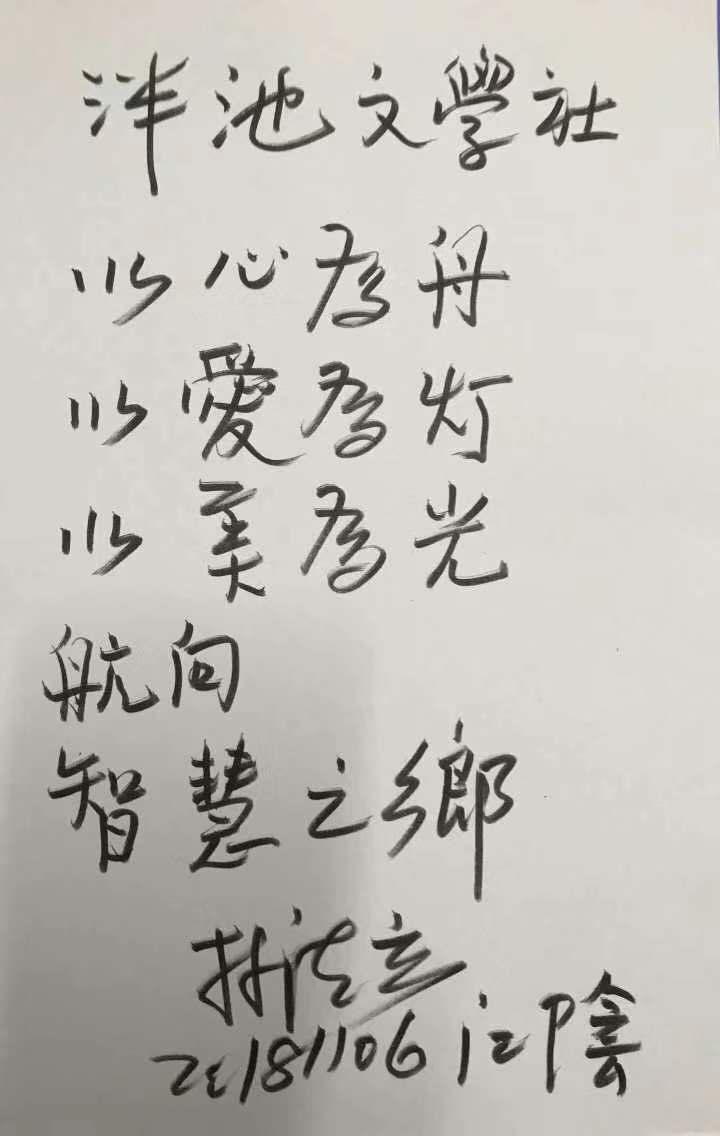 泮池文學社
以心為舟
以愛為灯
以美為光
航向
智慧之鄉
林清玄
20181106 江陰